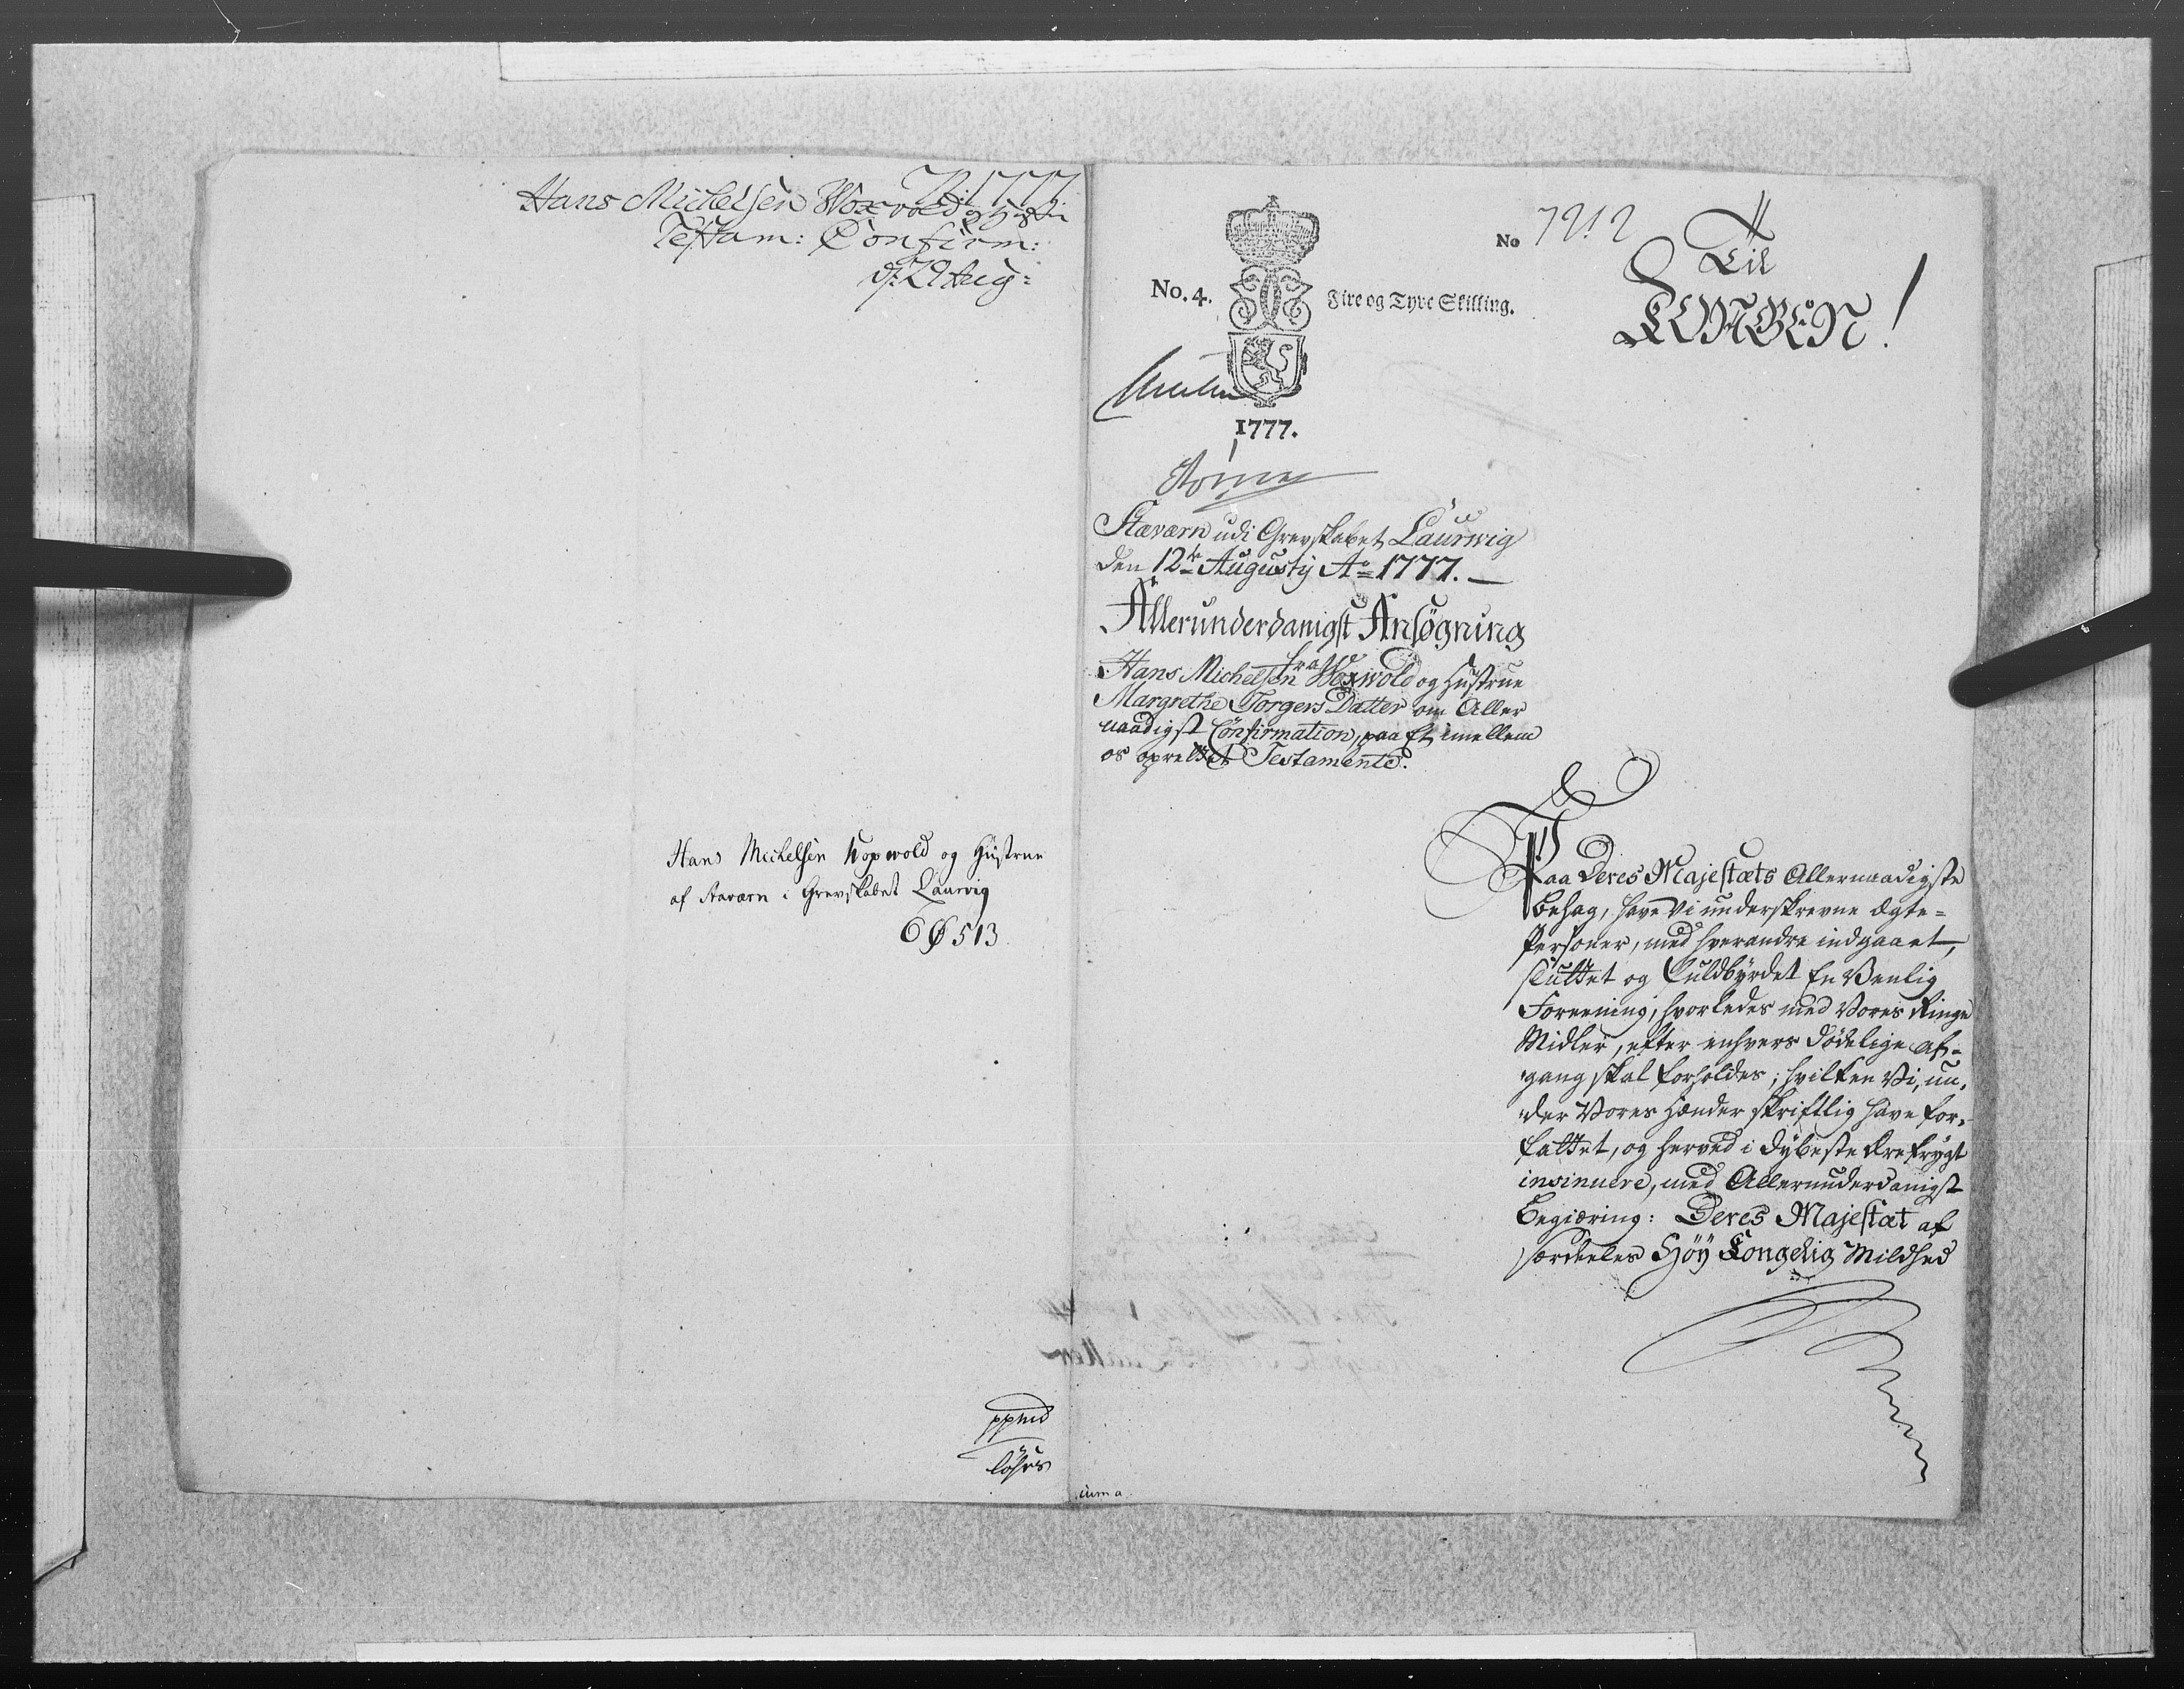 1777
Hans Michelsen Woxvold og Hustr:
Testam: Confirm:
d: 29 Aug:
Hans Michelsen Woxwold og Hustrue
af Staværn i Grevskabet Laurvig
513
No. 4.
Fire og Tyve Skilling.
1777.
No 7212
Til
KONGEN!
Staværn udi Grevskabet Laurwig
den 12te Augustij Ao 1777.
Allerunderdanigst Ansøgning
fra
Hans Michelsen Woxwold og Hustrue
Margrethe Torgers Datter om Aller
naadigst Confirmation, paa Et imellem
os oprettet Testamente.
Paa Deres Majestæts Allernaadigste
behag, have Vi underskrevne Ægte-
Personer, med hverandre indgaaet,
sluttet og fuldbyrdet En Venlig
Foreening, hvorledes med Vores Ringe
Midler, efter enhvers dødelige Af-
gang skal forholdes; hvilken Vi, un-
der Vores Hænder skriftlig have for-
fattet, og herved i dybeste Ærefrygt
insinuere, med Allerunderdanigst
begiæring: Deres Majestæt af
særdeeles Høy Kongelig Mildhed